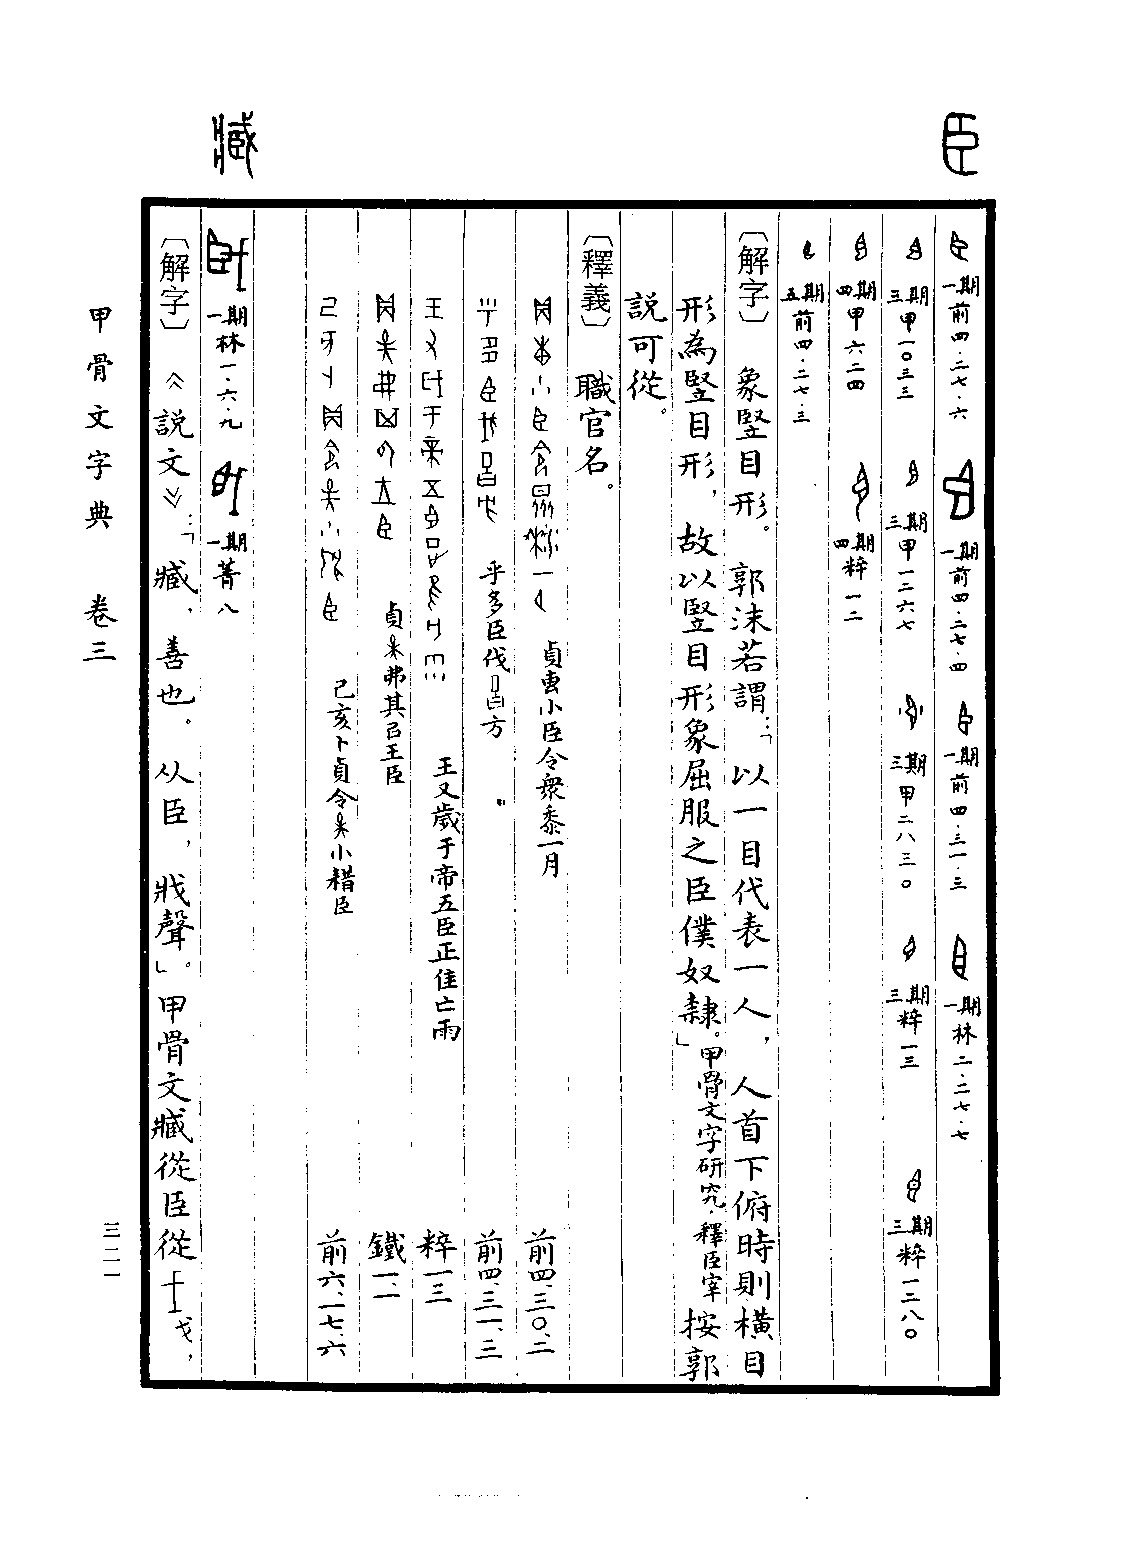 臣
一期前四·二七·六
一期前四·二七·四
一期前四·三一·三
一期林二·二七·七
三期甲一〇三三
三期甲一二六七
三期甲二八三〇
三期粹一三
三期粹一二八〇
四期甲六二四
四期粹一二
五期前四·二七·三
〔解字〕 象豎目形。郭沫若謂：「以一目代表一人，人首下俯時則橫目
形為豎目形，故以豎目形象屈服之臣僕奴隸。」甲骨文字研究·釋臣宰 按郭
說可從。
〔釋義〕 職官名。
貞叀小臣令衆黍一月 前四、三〇、二
乎多臣伐𢀛方 前四、三一、三
王又歲于帝五臣正隹亡雨 粹一三
貞 弗其㠯王臣 鐵一、一
己亥卜貞令 小耤臣 前六、一七、六
臧
一期林一·六·九
一期菁八
〔解字〕 《說文》：「臧，善也。从臣，戕聲」。甲骨文臧從臣從 戈，
甲骨文字典 卷三
三二一